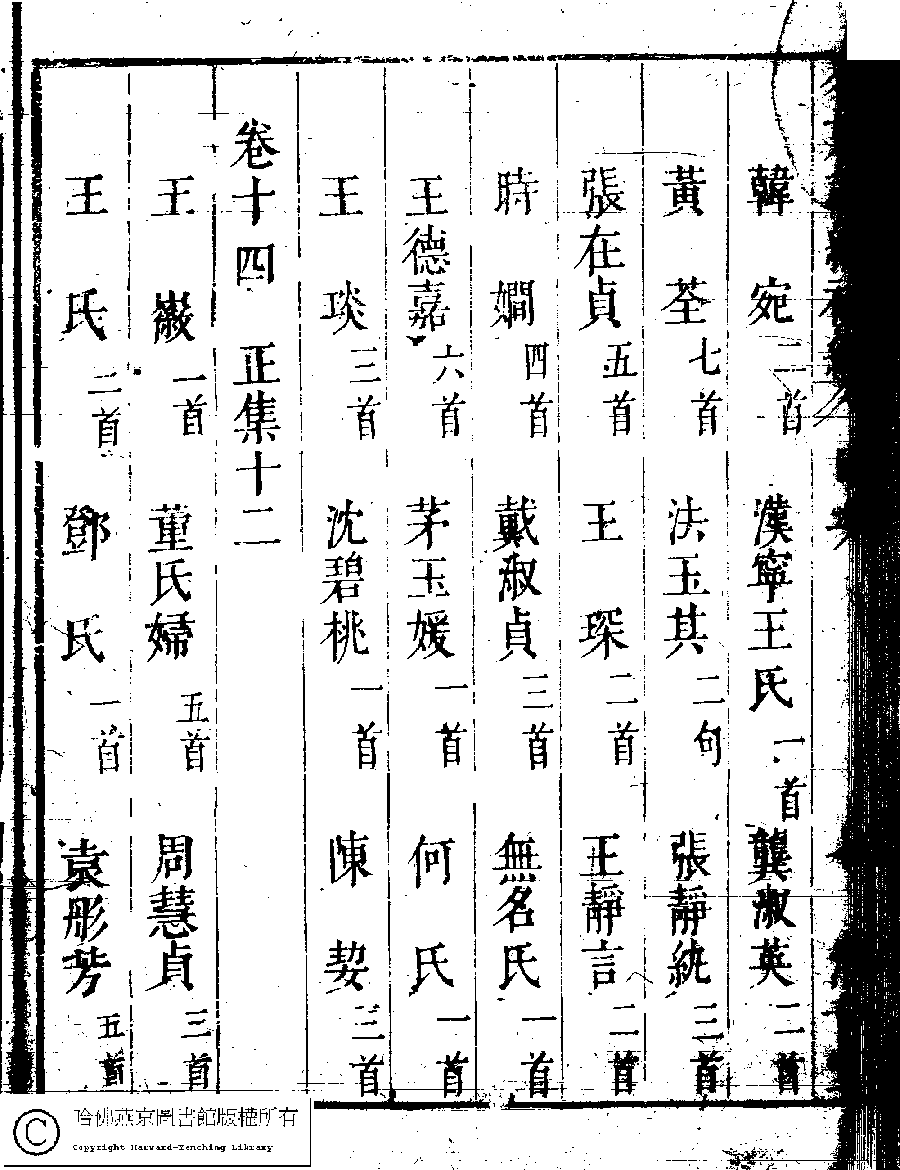 韓宛二首 漢寧王氏一首 龔淑英二首
黃荃七首 洪玉其二句 張靜統三首
張在貞五首 王琛二首 王靜言二首
時嫺四首 戴淑貞三首 無名氏一首
王德嘉六首 茅玉媛一首 何氏一首
王琰三首 沈碧桃一首 陳契三首
卷十四 正集十二
王巖一首 董氏婦五首 周慧貞三首
王氏二首 鄧氏一首 袁彤芳五首
哈佛燕京圖書館版權所有
Copyright Harvard-Yenching Library